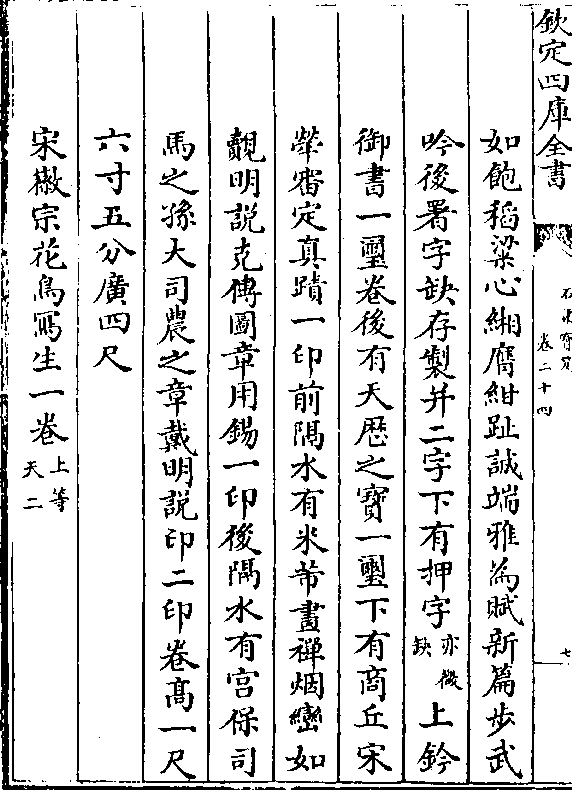 欽定四庫全書
卷二十四
七
如飽稻粱心緗膺紺趾誠端雅為賦新篇步武
吟後署字缺存製并二字下有押字亦微缺上鈐
御書一璽卷後有天厯之寶一璽下有商丘宋
犖審定真蹟一印前隔水有米芾畫禪烟巒如
覿明說克傳圖章用錫一印後隔水有宫保司
馬之孫大司農之章戴明說印二印卷高一尺
六寸五分廣四尺
宋徽宗花鳥寫生一卷上等天二